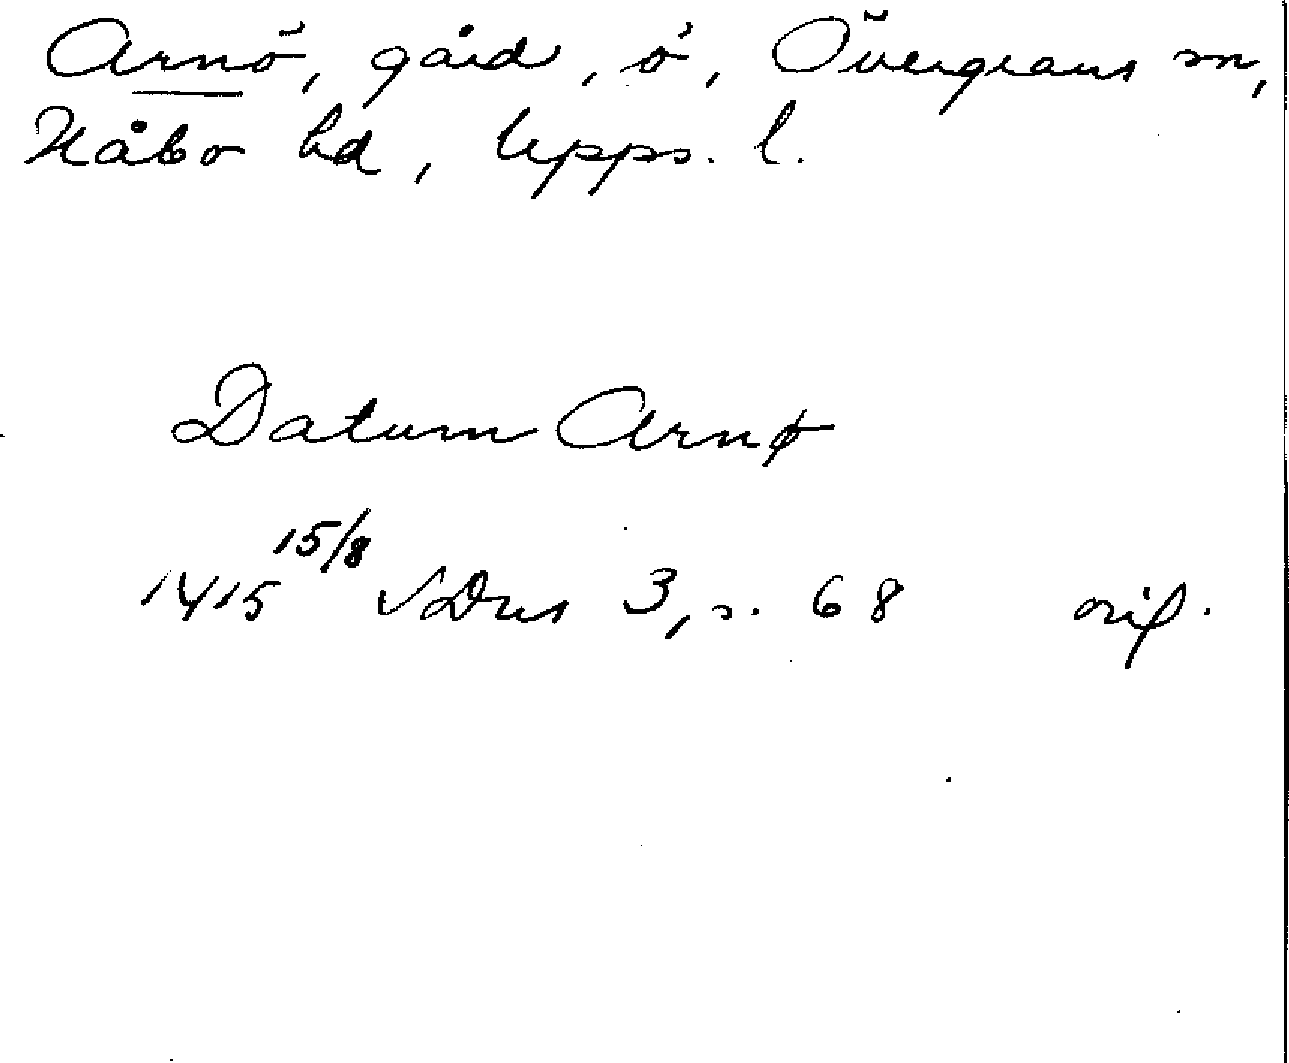 Arnö, gård, ö, Övergrans sn,
Håbo hd, Upps. l.
Datum Arnø
15/8
1415 SDns 3, s. 68 orig.